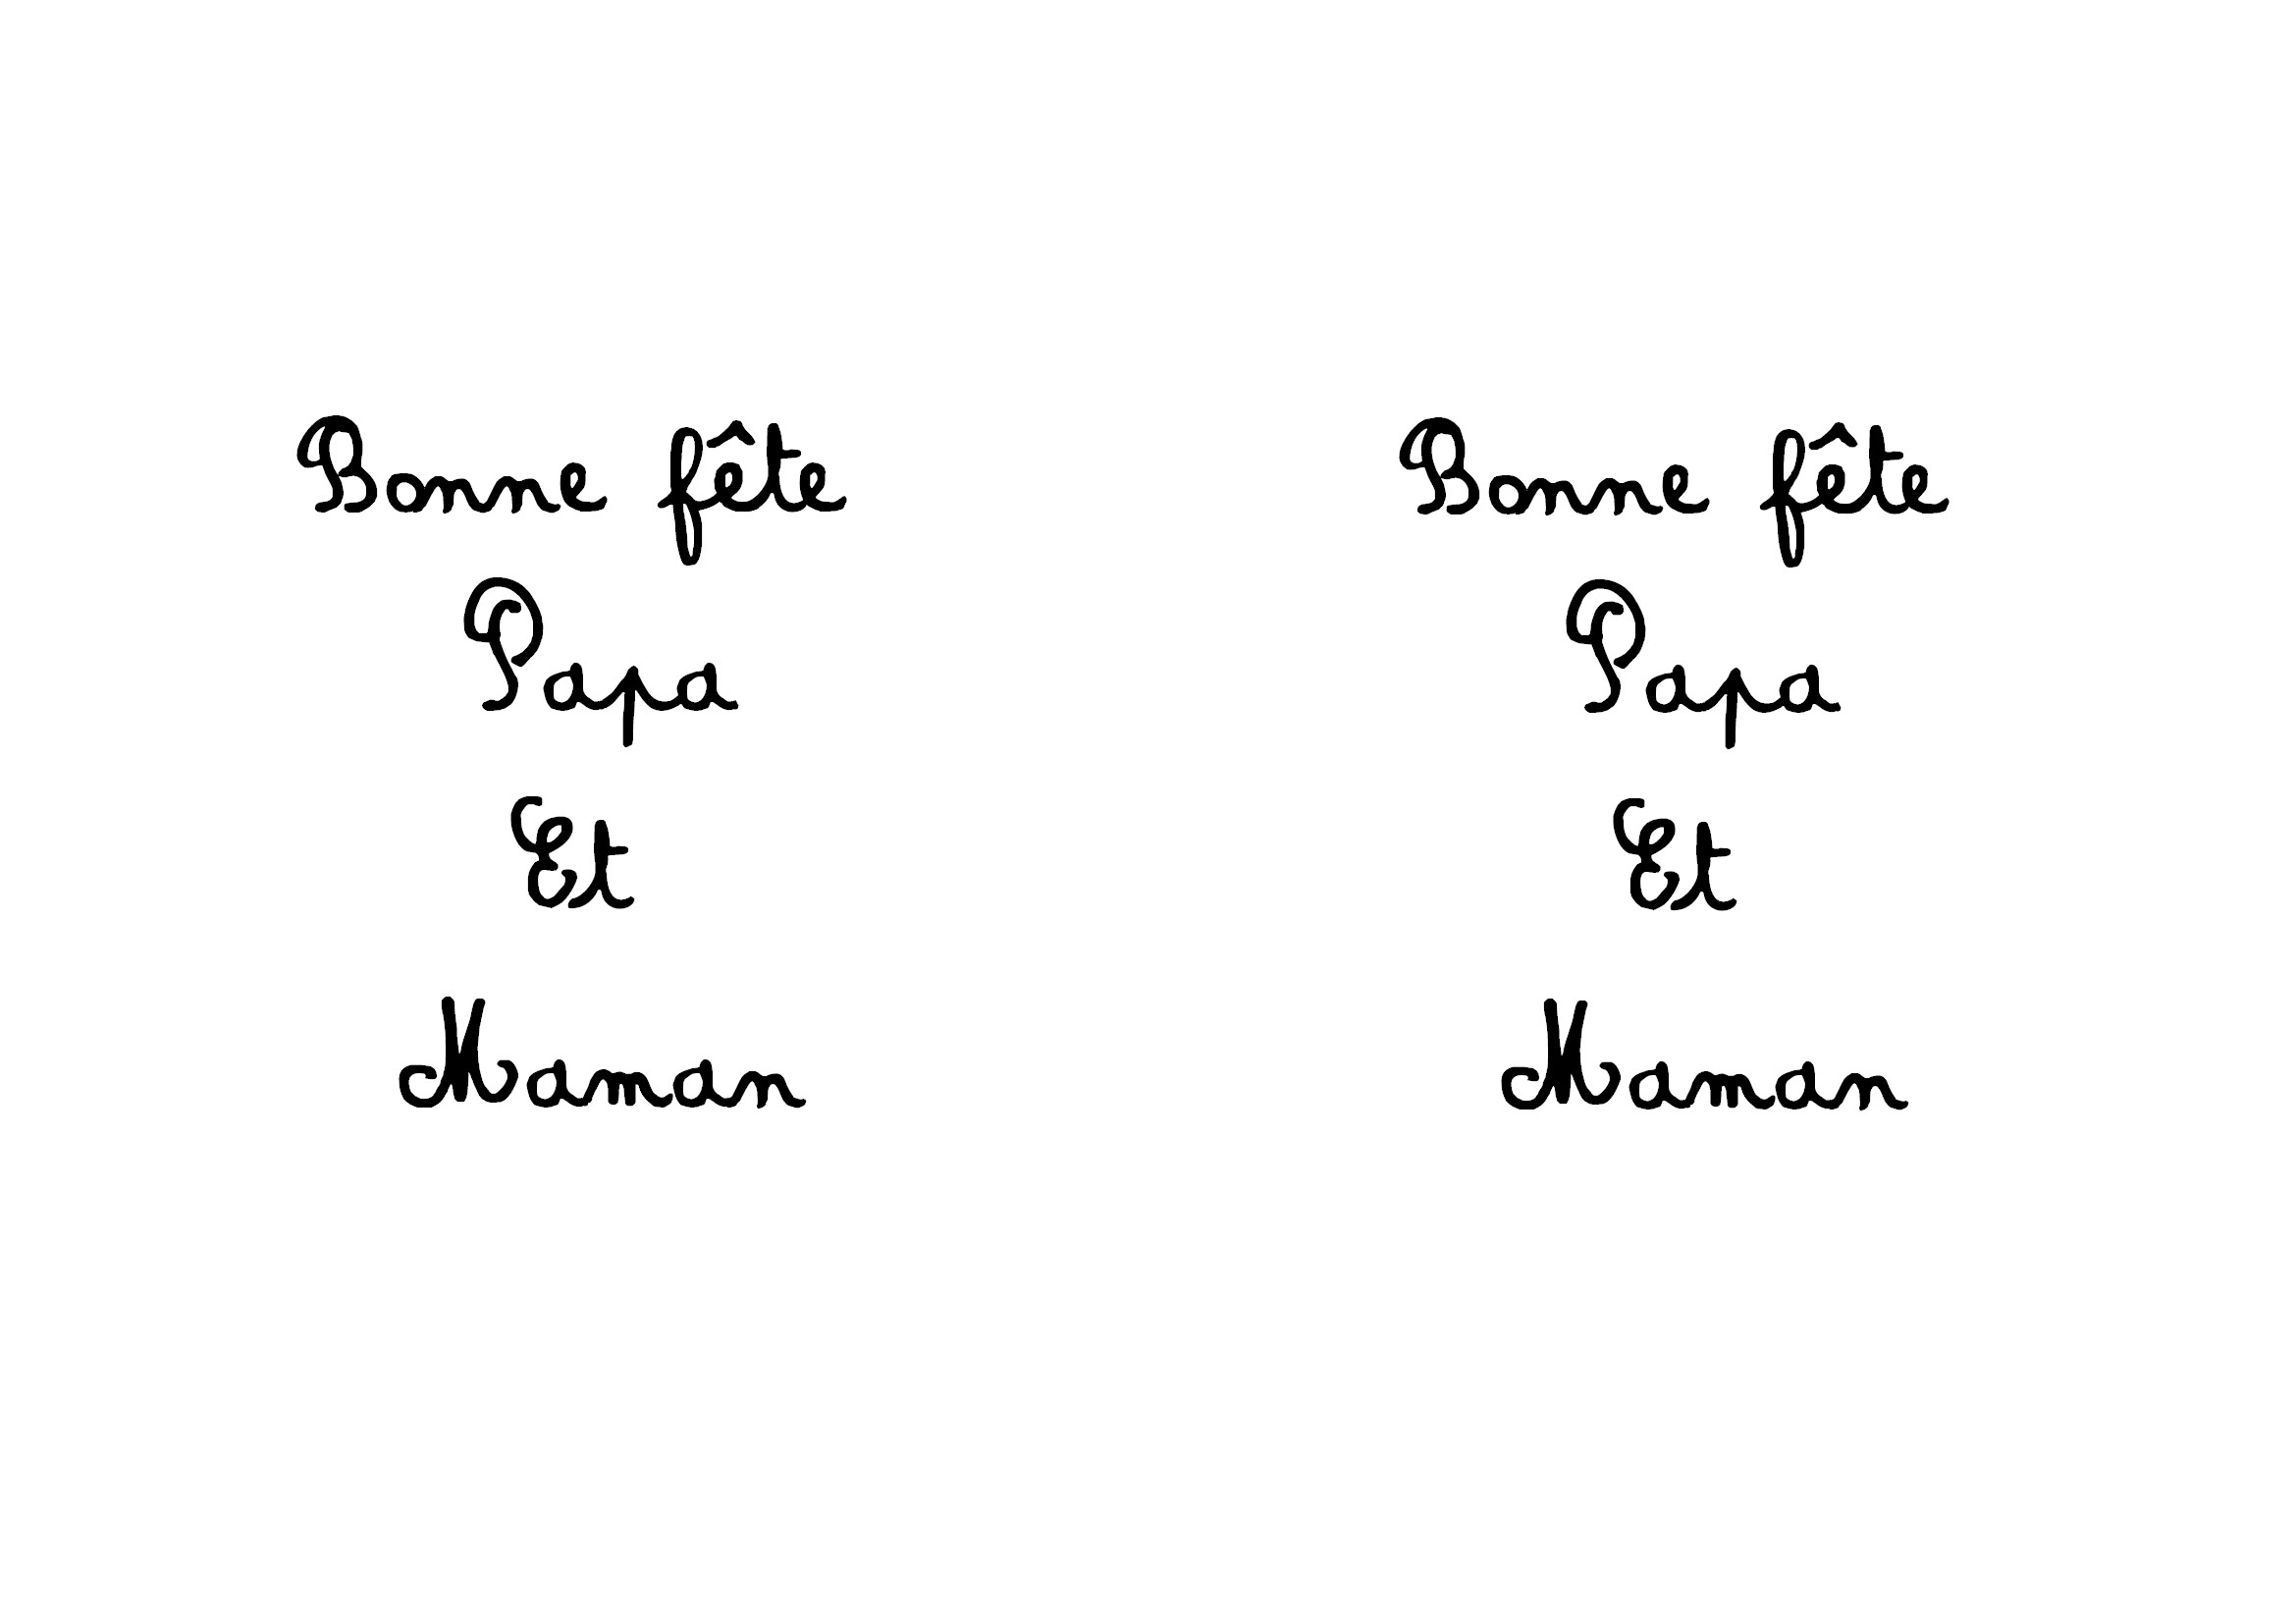 Bonne fête
Papa
Et
Maman
Bonne fête
Papa
Et
Maman